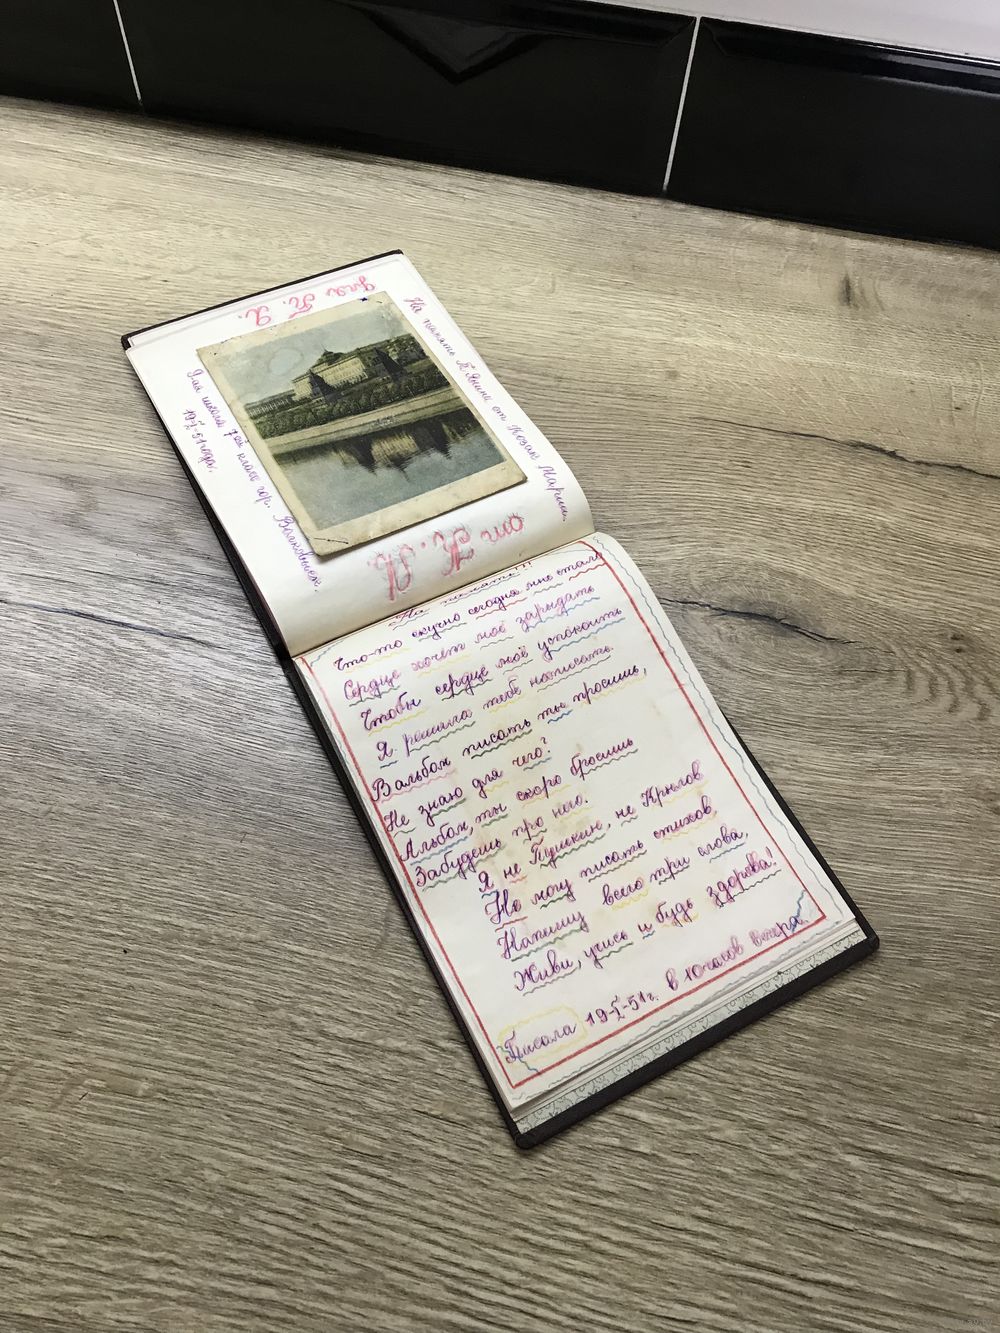 для П. Я.
На память П. Янине от Козик Марии.
2ая школа 7ой класс гор. Волковыск.
19-I-51 года.
от К. М.
На память!!!
Что-то скучно сегодня мне стало
Сердце хочет моё зарыдать
Чтобы сердце моё успокоить
Я решила тебе написать.
В альбом писать ты просишь,
Не знаю для чего?
Альбом, ты скоро бросишь
Забудешь про него.
Я не Пушкин, не Крылов
Но могу писать стихов,
Напишу всего три слова,
Живи, учись и будь здорова!
Писала 19-I-51 г. в 10 часов вечера.